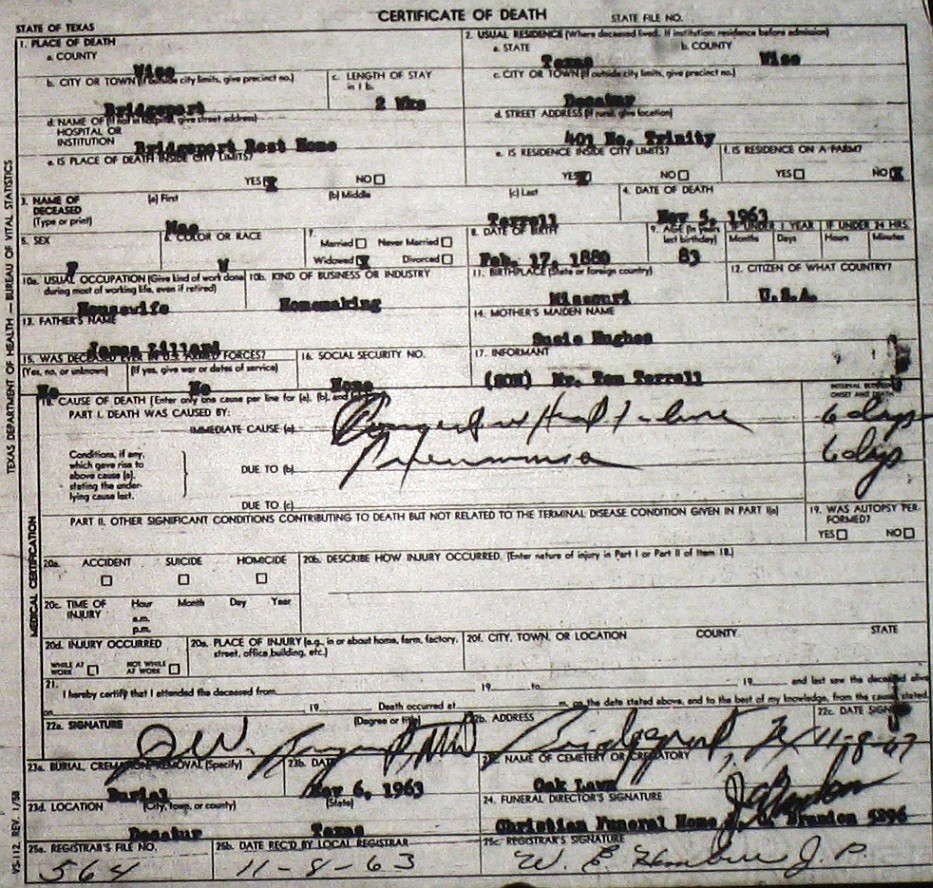 CERTIFICATE OF DEATH
STATE FILE NO.
STATE OF TEXAS
1. PLACE OF DEATH
a. COUNTY
Wise
2. USUAL RESIDENCE (Where deceased lived. If institution: residence before admission)
a. STATE
Texas
b. COUNTY
Wise
b. CITY OR TOWN (If outside city limits, give precinct no.)
Bridgeport
c. LENGTH OF STAY
in 1 b.
2 Wks
c. CITY OR TOWN (If outside city limits, give precinct no.)
Decatur
d. NAME OF (If not in hospital, give street address)
HOSPITAL OR
INSTITUTION
Bridgeport Rest Home
d. STREET ADDRESS (If rural, give location)
401 No. Trinity
e. IS PLACE OF DEATH INSIDE CITY LIMITS?
YES X NO
e. IS RESIDENCE INSIDE CITY LIMITS?
YES X NO
f. IS RESIDENCE ON A FARM?
YES NO X
3. NAME OF
DECEASED
(Type or print)
(a) First
Mae
(b) Middle
(c) Last
Terrell
4. DATE OF DEATH
Nov 5, 1963
5. SEX
F
6. COLOR OR RACE
W
7.
Married Never Married
Widowed X Divorced
8. DATE OF BIRTH
Feb. 17, 1880
9. AGE (In years
last birthday)
83
IF UNDER 1 YEAR
Months Days
IF UNDER 24 HRS.
Hours Minutes
10a. USUAL OCCUPATION (Give kind of work done
during most of working life, even if retired)
Housewife
10b. KIND OF BUSINESS OR INDUSTRY
Homemaking
11. BIRTHPLACE (State or foreign country)
Missouri
12. CITIZEN OF WHAT COUNTRY?
U.S.A.
13. FATHER'S NAME
James Lillard
14. MOTHER'S MAIDEN NAME
Susie Hughes
15. WAS DECEASED EVER IN U.S. ARMED FORCES?
(Yes, no, or unknown)
No
(If yes, give war or dates of service)
No
16. SOCIAL SECURITY NO.
None
17. INFORMANT
(SON) Mr. Tom Terrell
18. CAUSE OF DEATH [Enter only one cause per line for (a), (b), and (c)]
PART I. DEATH WAS CAUSED BY:
INTERVAL BETWEEN
ONSET AND DEATH
IMMEDIATE CAUSE (a)
Congestive Heart Failure
6 days
Conditions, if any,
which gave rise to
above cause (a),
stating the under-
lying cause last.
DUE TO (b)
Pneumonia
6 days
DUE TO (c)
PART II. OTHER SIGNIFICANT CONDITIONS CONTRIBUTING TO DEATH BUT NOT RELATED TO THE TERMINAL DISEASE CONDITION GIVEN IN PART I(a)
19. WAS AUTOPSY PER-
FORMED?
YES NO
20a. ACCIDENT SUICIDE HOMICIDE
20b. DESCRIBE HOW INJURY OCCURRED. (Enter nature of injury in Part I or Part II of Item 18.)
20c. TIME OF
INJURY
Hour Month Day Year
a.m.
p.m.
20d. INJURY OCCURRED
WHILE AT
WORK
NOT WHILE
AT WORK
20e. PLACE OF INJURY (e.g., in or about home, farm, factory,
street, office building, etc.)
20f. CITY, TOWN, OR LOCATION COUNTY STATE
21.
I hereby certify that I attended the deceased from 19 to 19 and last saw the deceased alive
on 19 Death occurred at m. on the date stated above, and to the best of my knowledge, from the causes stated.
22a. SIGNATURE
(Degree or title)
MD
22b. ADDRESS
Bridgeport, Tx
22c. DATE SIGNED
23a. BURIAL, CREMATION, REMOVAL (Specify)
Burial
23b. DATE
Nov 6, 1963
23c. NAME OF CEMETERY OR CREMATORY
Oak Lawn
23d. LOCATION
(City, town, or county)
Decatur
(State)
Texas
24. FUNERAL DIRECTOR'S SIGNATURE
Christian Funeral Home Brandon 5296
25a. REGISTRAR'S FILE NO.
564
25b. DATE REC'D BY LOCAL REGISTRAR
11-8-63
25c. REGISTRAR'S SIGNATURE
W. E. J. P.
TEXAS DEPARTMENT OF HEALTH — BUREAU OF VITAL STATISTICS
MEDICAL CERTIFICATION
VS-112, REV. 1/58